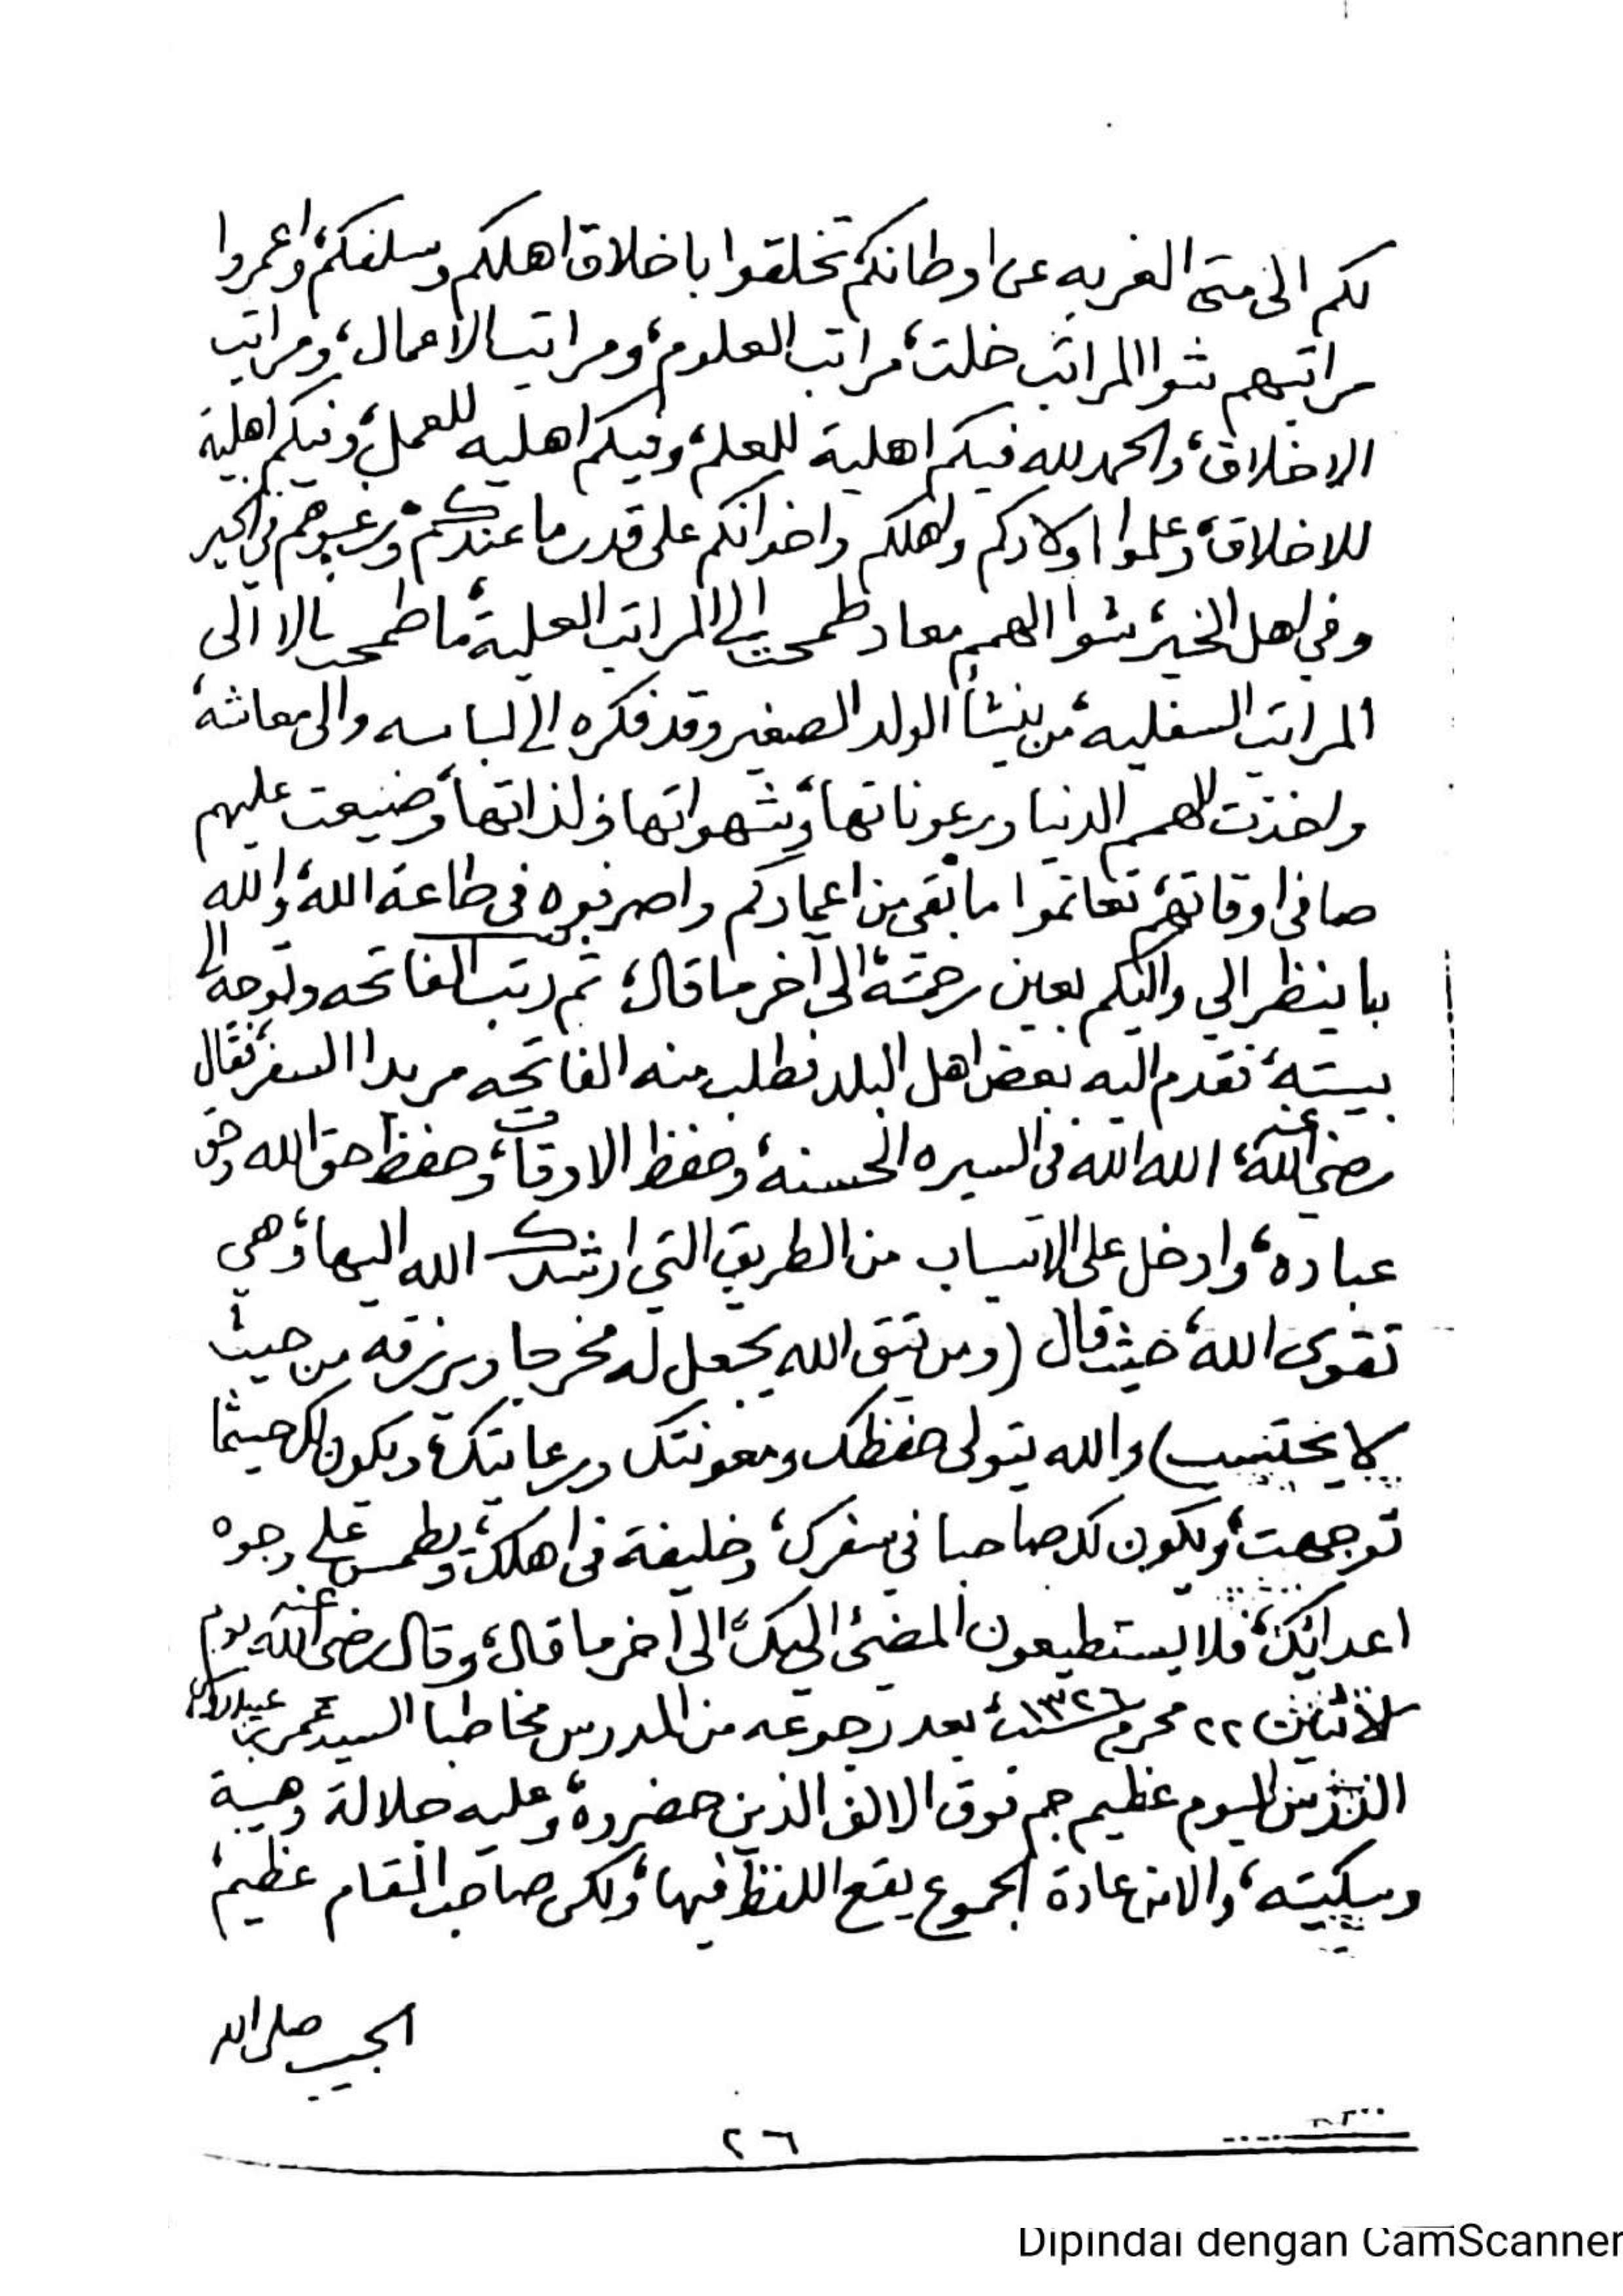 لكم الى متى الغربه عن اوطانكم تخلقوا باخلاق اهلكم وسلفكم، واعمروا
مراتبهم شوا المراتب خلت، مراتب العلوم، ومراتب الاعمال، ومراتب
الاخلاق، والحمد لله فيكم اهلية للعلم، وفيكم اهليه للعمل، وفيكم اهلية
للاخلاق، وعلموا اولادكم واهلكم واخوانكم على قدر ما عندكم، ورغبوهم في الخير
وفي اهل الخير، شوا الهمم معاد طمحت الى المراتب العلية، ما طمحت الا الى
المراتب السفليه، من ينشأ الولد الصغير وقد فكره الى لباسه والى معاشه،
واخذت الهمم الدنيا ورعوناتها، وشهواتها ولذاتها، وضيعت عليهم
صافي اوقاتهم، تغانموا ما بقي من اعماركم واصرفوه في طاعة الله، والله
باينظر الي واليكم بعين رحمته، الى آخر ما قال، ثم رتب الفاتحه وتوجه الى
بيته، فتقدم اليه بعض اهل البلد فطلب منه الفاتحه مريدا السفر، فقال
رضي الله عنه، الله الله في السيره الحسنه، وحفظ الاوقات، وحفظ حق الله وحق
عباده، وادخل على الاسباب من الطريق التي ارشدك الله اليها، وهي
تقوى الله، حيث قال (ومن يتق الله يجعل له مخرجا ويرزقه من حيث
لا يحتسب) والله يتولى حفظك ومعونتك ورعايتك، ويكون لك حيثما
توجهت، ويكون لك صاحبا في سفرك، وخليفة في اهلك، ويطمس على وجوه
اعدائك، فلا يستطيعون المضي اليك، الى آخر ما قال، وقال رضي الله عنه يوم
الاثنين ٢٢ محرم سنة ١٣٢٦، بعد رجوعه من المدرس مخاطبا السيد عمر بن عيدروس
المدرس اليوم عظيم جم فوق الالف الذين حضروه، وعليه جلالة وهيبة
وسكينه، والا من عادة الجموع يقع اللفظ فيها، ولكن صاحب المقام عظيم،
الحبيب صلى الله
٢٦
Dipindai dengan CamScanner